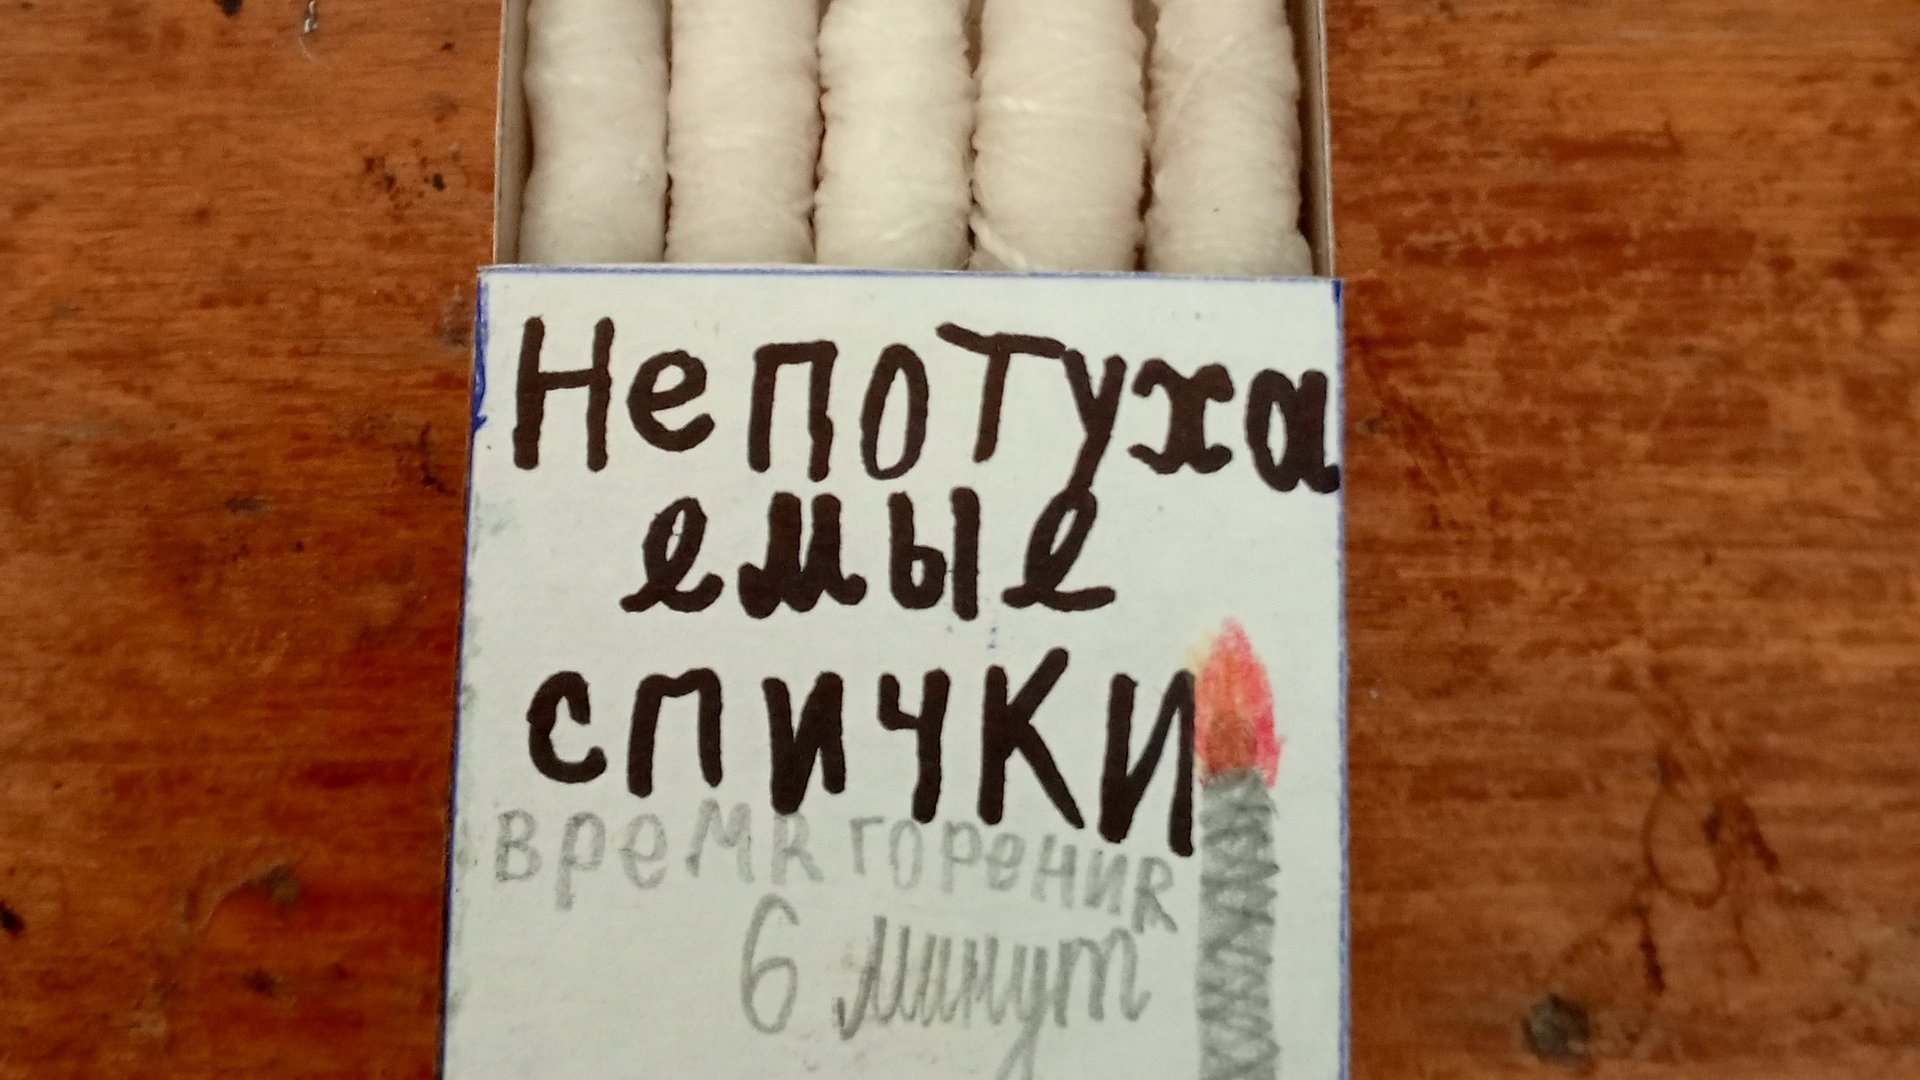 Непотуха
емые
спички
время горения
6 минут